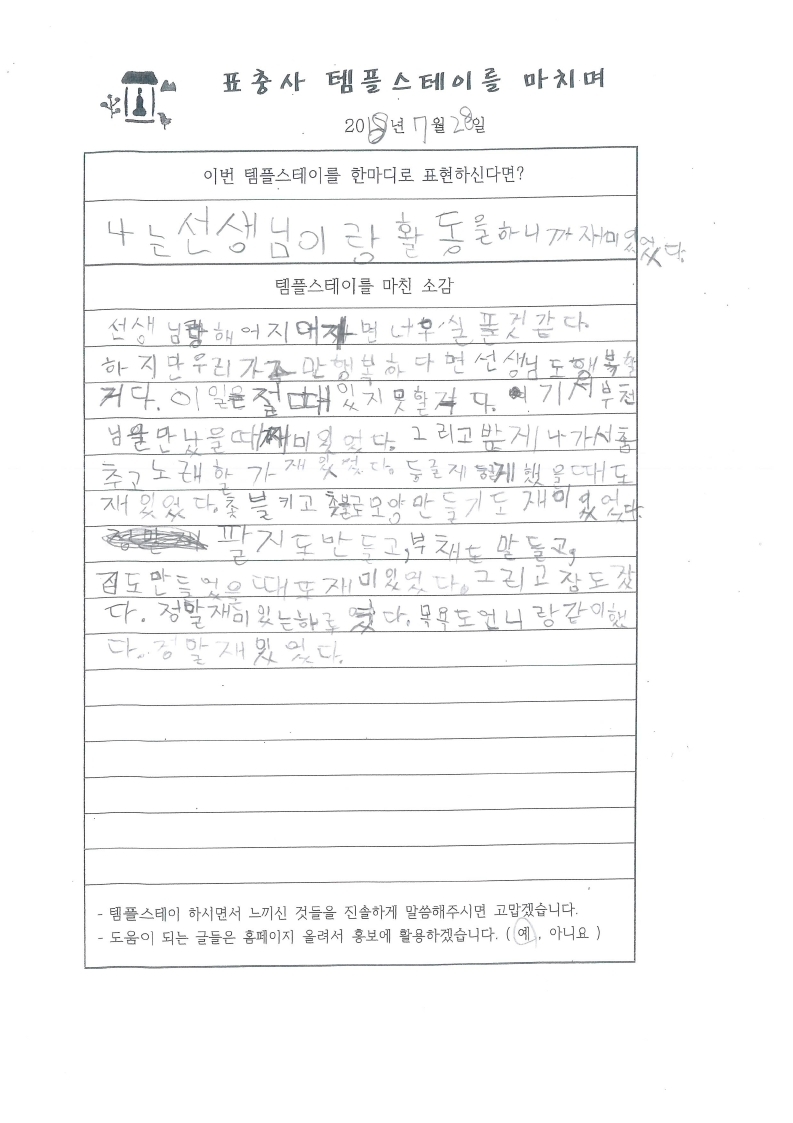 표충사 템플스테이를 마치며
2018년 7월 28일
이번 템플스테이를 한마디로 표현하신다면?
나는 선생님이랑 활동을하니까 재미있었다.
템플스테이를 마친 소감
선생님랑 해어지 면 너무 실플것같다.
하지만우리가족만행복하다면선생님도행복할
거다. 이일은절때있지못할 다. 여기서부천
님을만났을때재미있었다. 그리고밤제나가서춤
추고노래할 가재밌었다. 둥글게 했을때도
재밌었다. 촟불키고촛불로모양만들기도재미있었다
팔지도만들고,부채도말들고,
집도만들었을때또재미있었다. 그리고잠도잤
다. 정말재미있는하루였다. 목욕도언니랑같이했
다. 정말재밌었다.
- 템플스테이 하시면서 느끼신 것들을 진솔하게 말씀해주시면 고맙겠습니다.
- 도움이 되는 글들은 홈페이지 올려서 홍보에 활용하겠습니다. ( 예 , 아니요 )